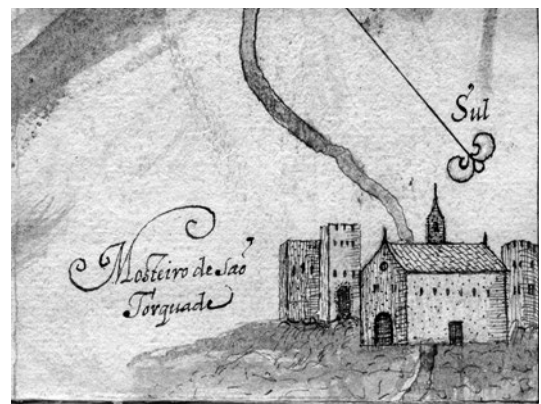 Sul
Mosteiro de São
Torquade